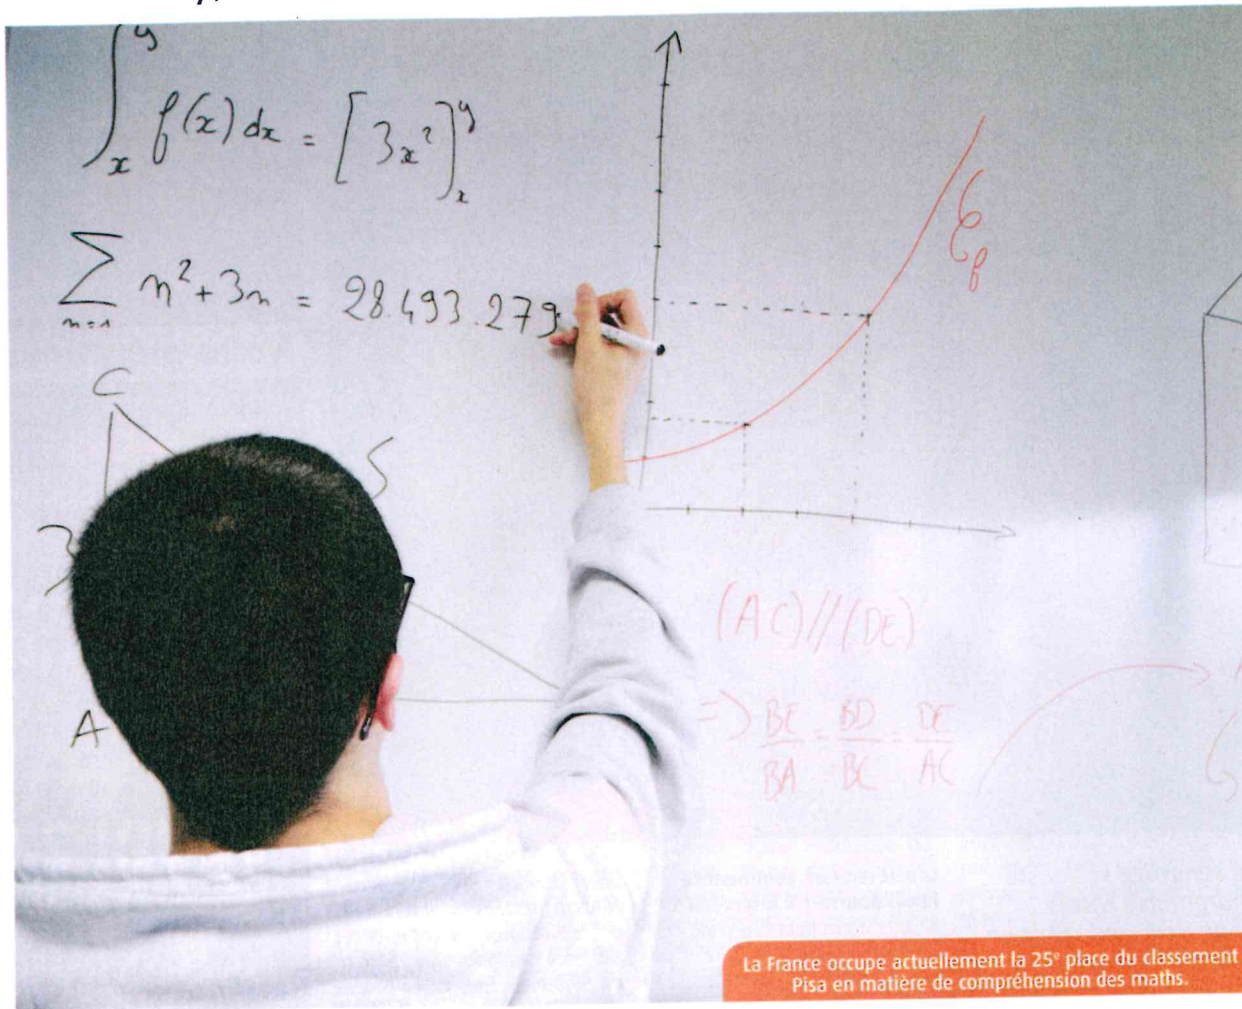 ∫ₓʸ f(x) dx = [3x²]ₓʸ
∑ n²+3n = 28.493.279
n=1
C
A
𝒞f
(AC)//(DE)
=> BE/BA = BD/BC = DE/AC
La France occupe actuellement la 25e place du classement
Pisa en matière de compréhension des maths.